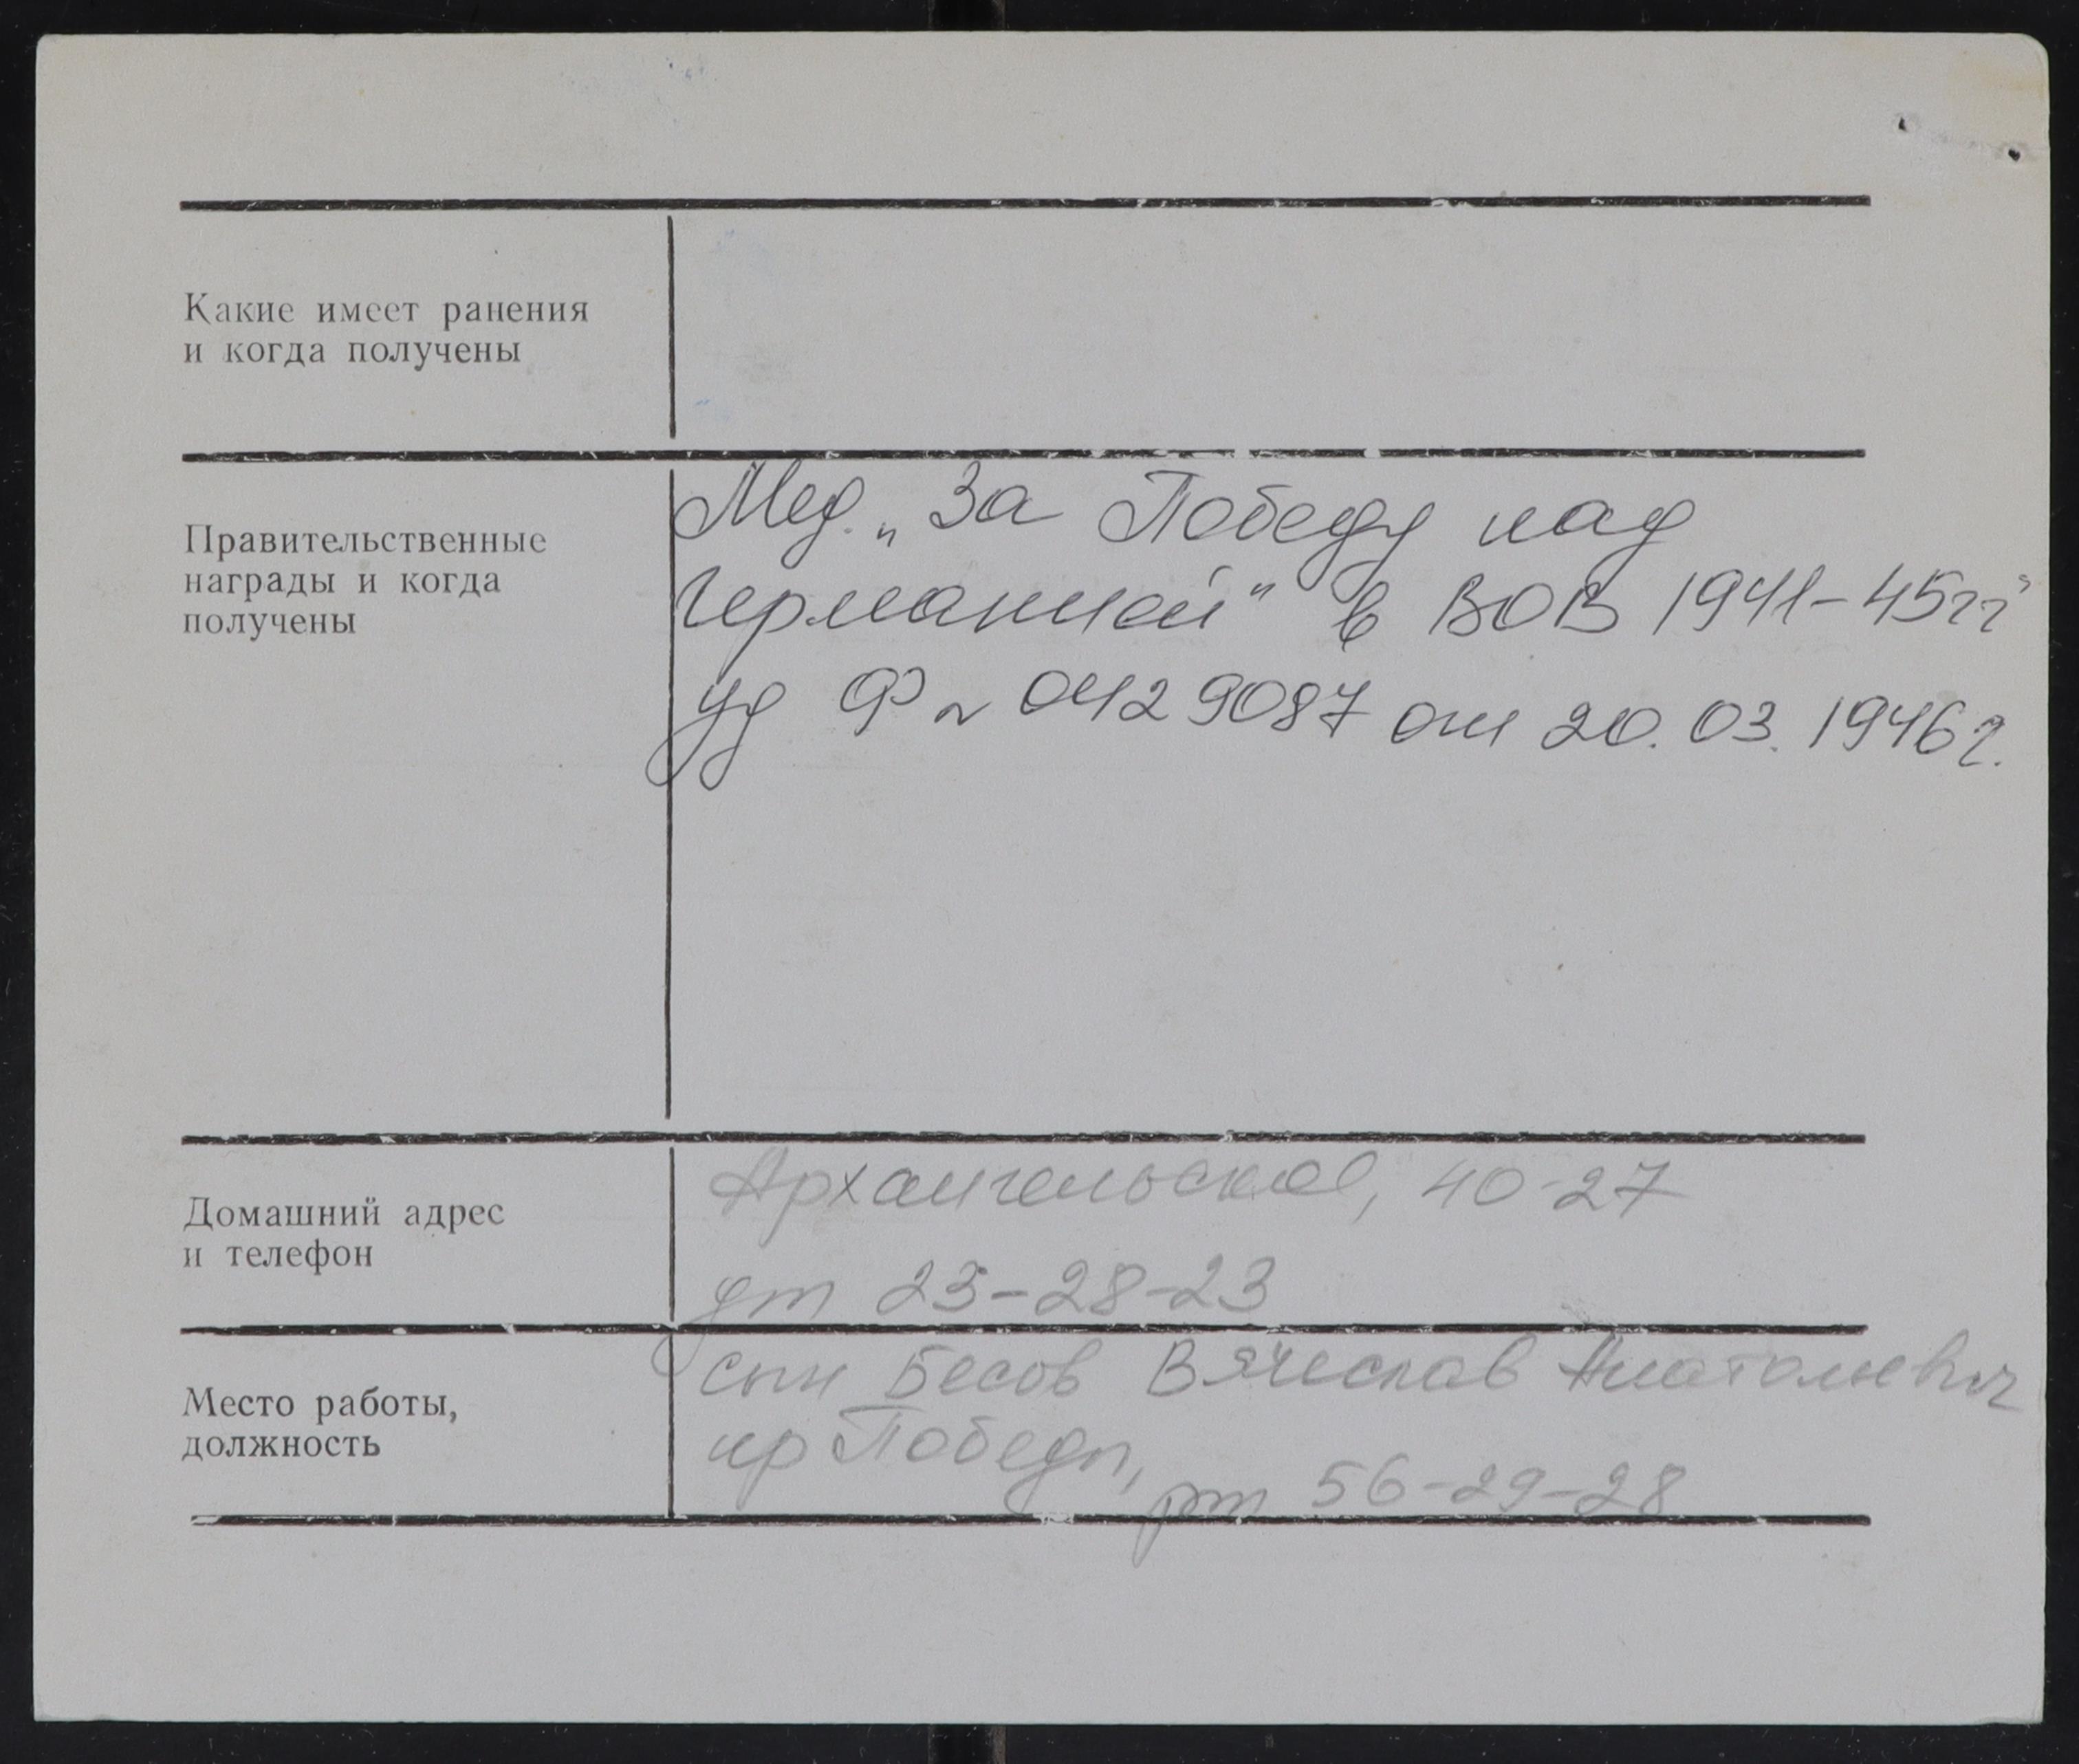 Какие имеет ранения
и когда получены
Правительственные
награды и когда
получены
Мед. „За Победу над
Германией" в ВОВ 1941-45гг"
уд Ф № 0429087 от 20.03.1946г.
Домашний адрес
и телефон
Архангельская, 40-27
дт 23-28-23
Место работы,
должность
сын Бесов Вячеслав Анатольевич
пр Победы, рт 56-29-28